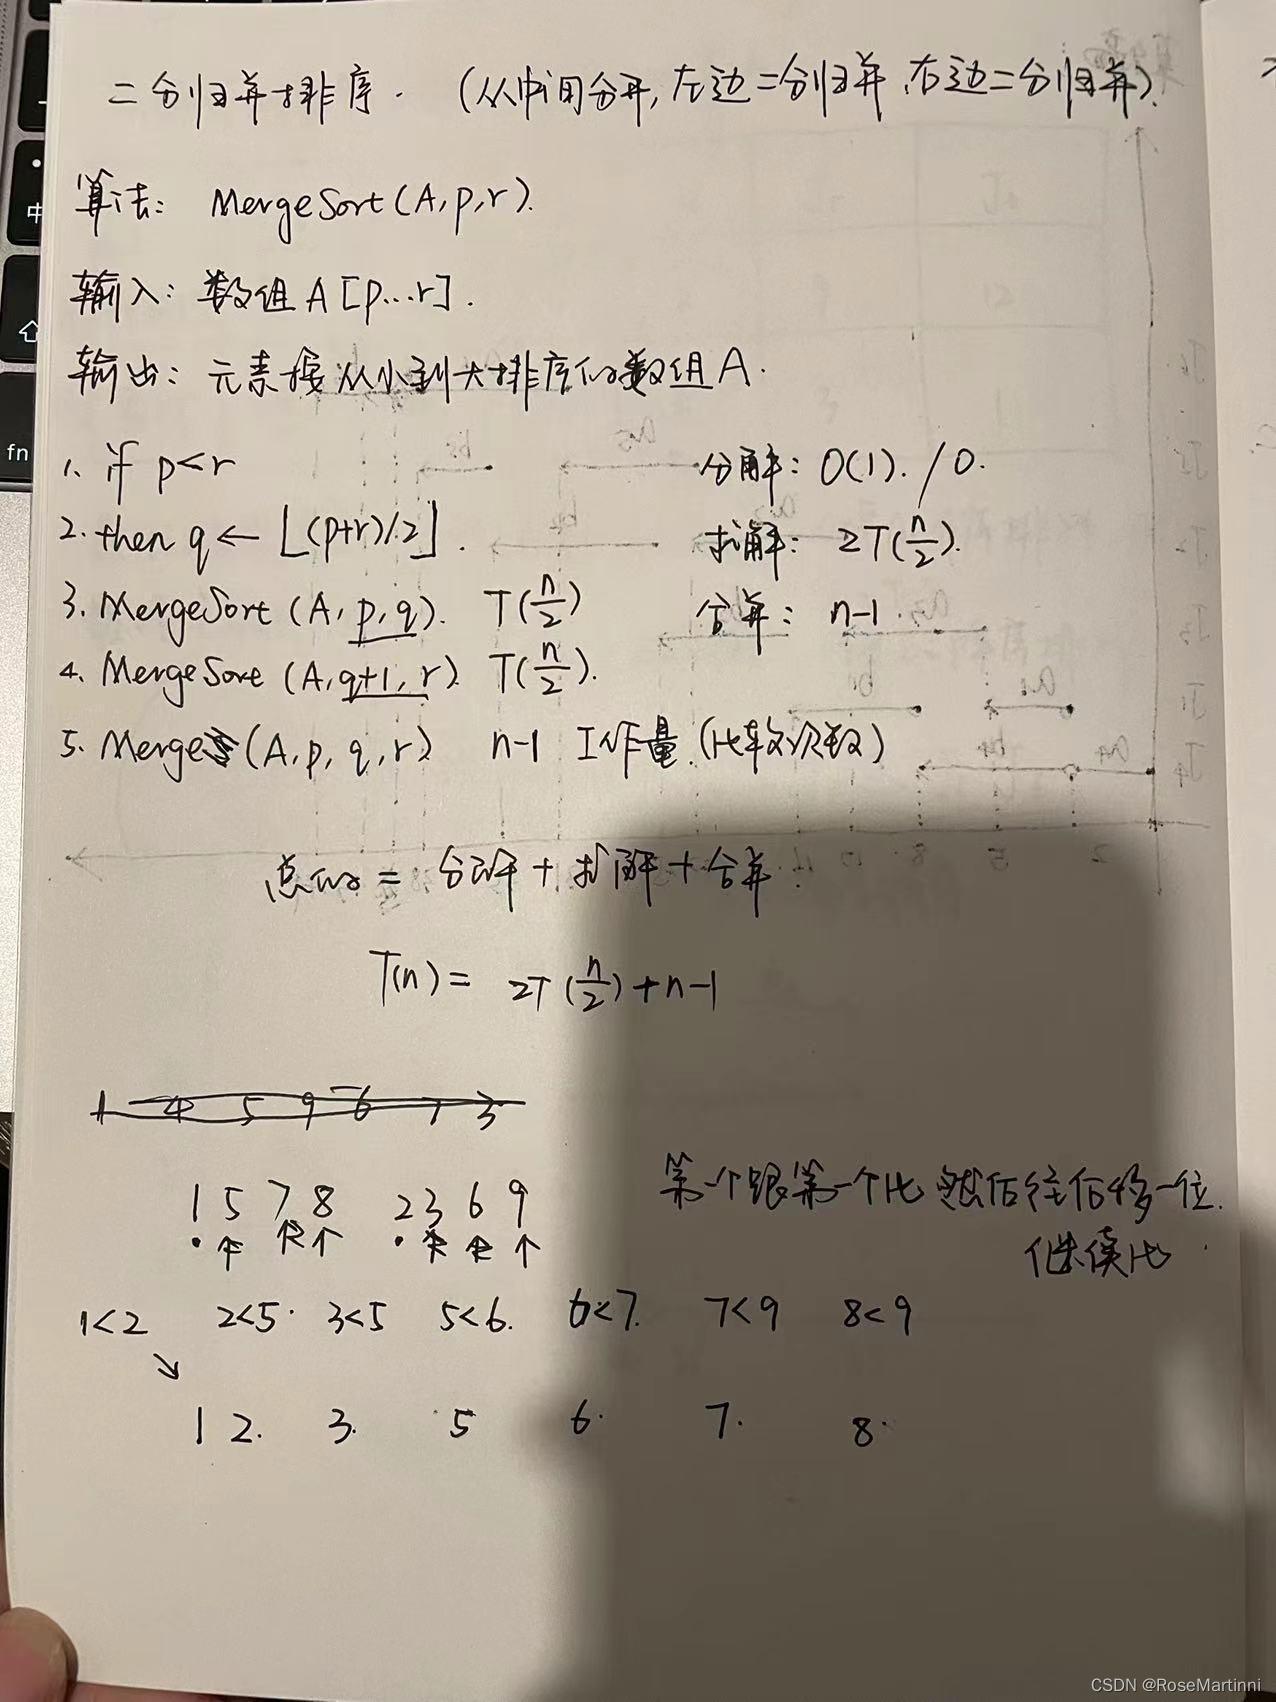 二分归并排序. (从中间分开,左边二分归并,右边二分归并).
算法: MergeSort(A,p,r).
输入: 数组A[p...r].
输出: 元素按从小到大排序的数组A.
1. if p<r
分解: O(1). / 0.
2. then q← ⌊(p+r)/2⌋.
求解: 2T(n/2).
3. MergeSort (A, p, q). T(n/2)
合并: n-1.
4. MergeSort (A, q+1, r). T(n/2).
5. Merge (A, p, q, r) n-1 工作量. (比较次数)
总的 = 分解 + 求解 + 合并.
T(n) = 2T(n/2)+n-1
1 4 5 9 6 7 3
1 5 7 8 2 3 6 9
第一个跟第一个比 然后往后移一位.
继续比.
1<2 2<5. 3<5 5<6. 6<7. 7<9 8<9
↘
1 2. 3. 5 6. 7. 8.
中
fn
CSDN @RoseMartinni